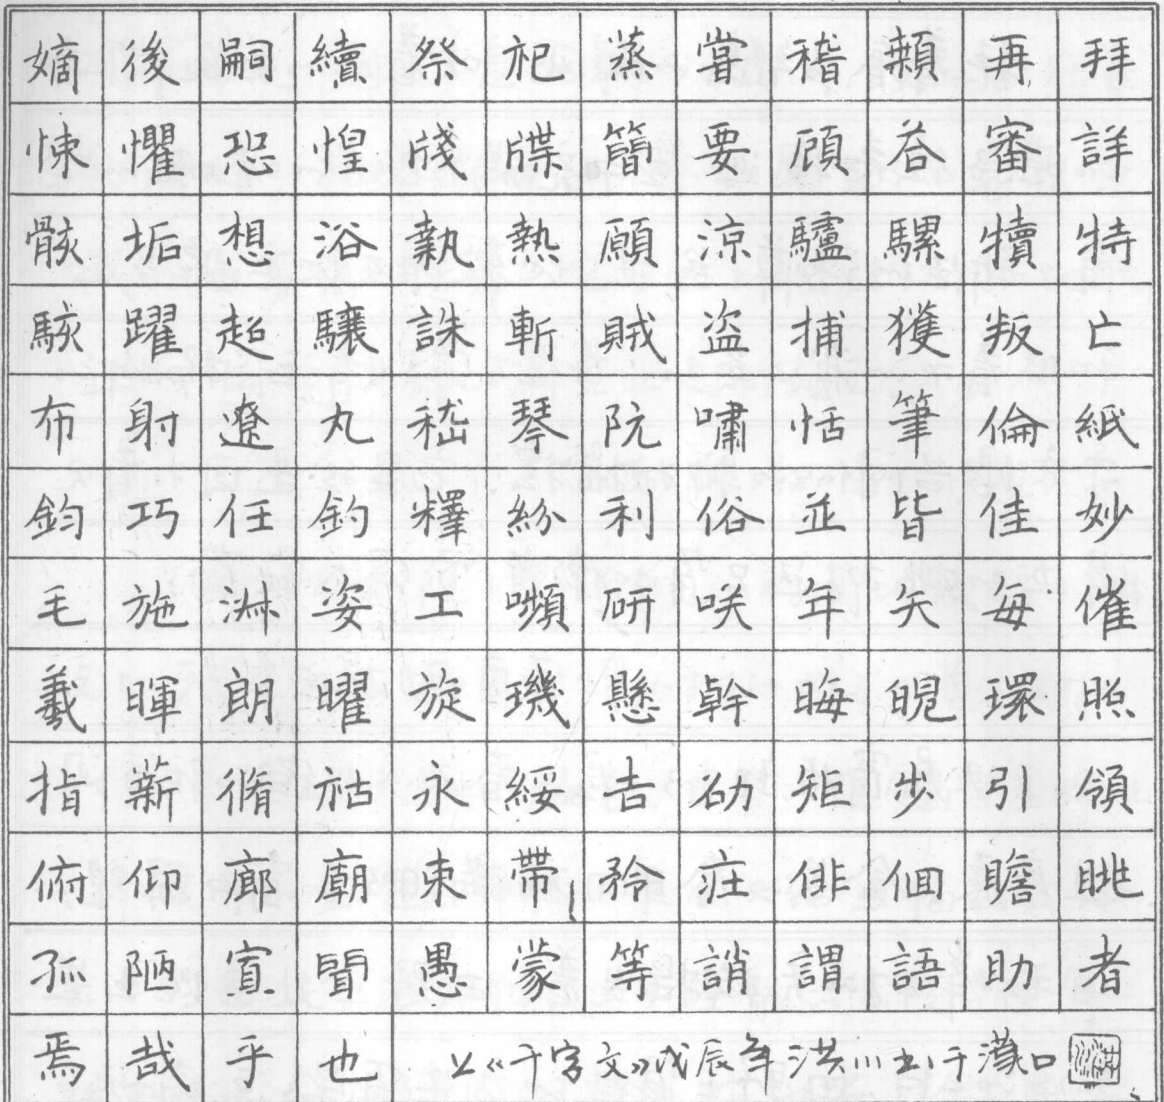 嫡後嗣續祭祀蒸嘗稽顙再拜
悚懼恐惶牋牒簡要顧荅審詳
骸垢想浴執熱願涼驢騾犢特
駭躍超驤誅斬賊盜捕獲叛亡
布射遼丸嵇琴阮嘯恬筆倫紙
鈞巧任釣釋紛利俗並皆佳妙
毛施淑姿工嚬研咲年矢每催
羲暉朗曜旋璣懸斡晦魄環照
指薪脩祜永綏吉劭矩步引領
俯仰廊廟束帶矜莊徘徊瞻眺
孤陋寡聞愚蒙等誚謂語助者
焉哉乎也 《千字文》戊辰年洪川書于漢口